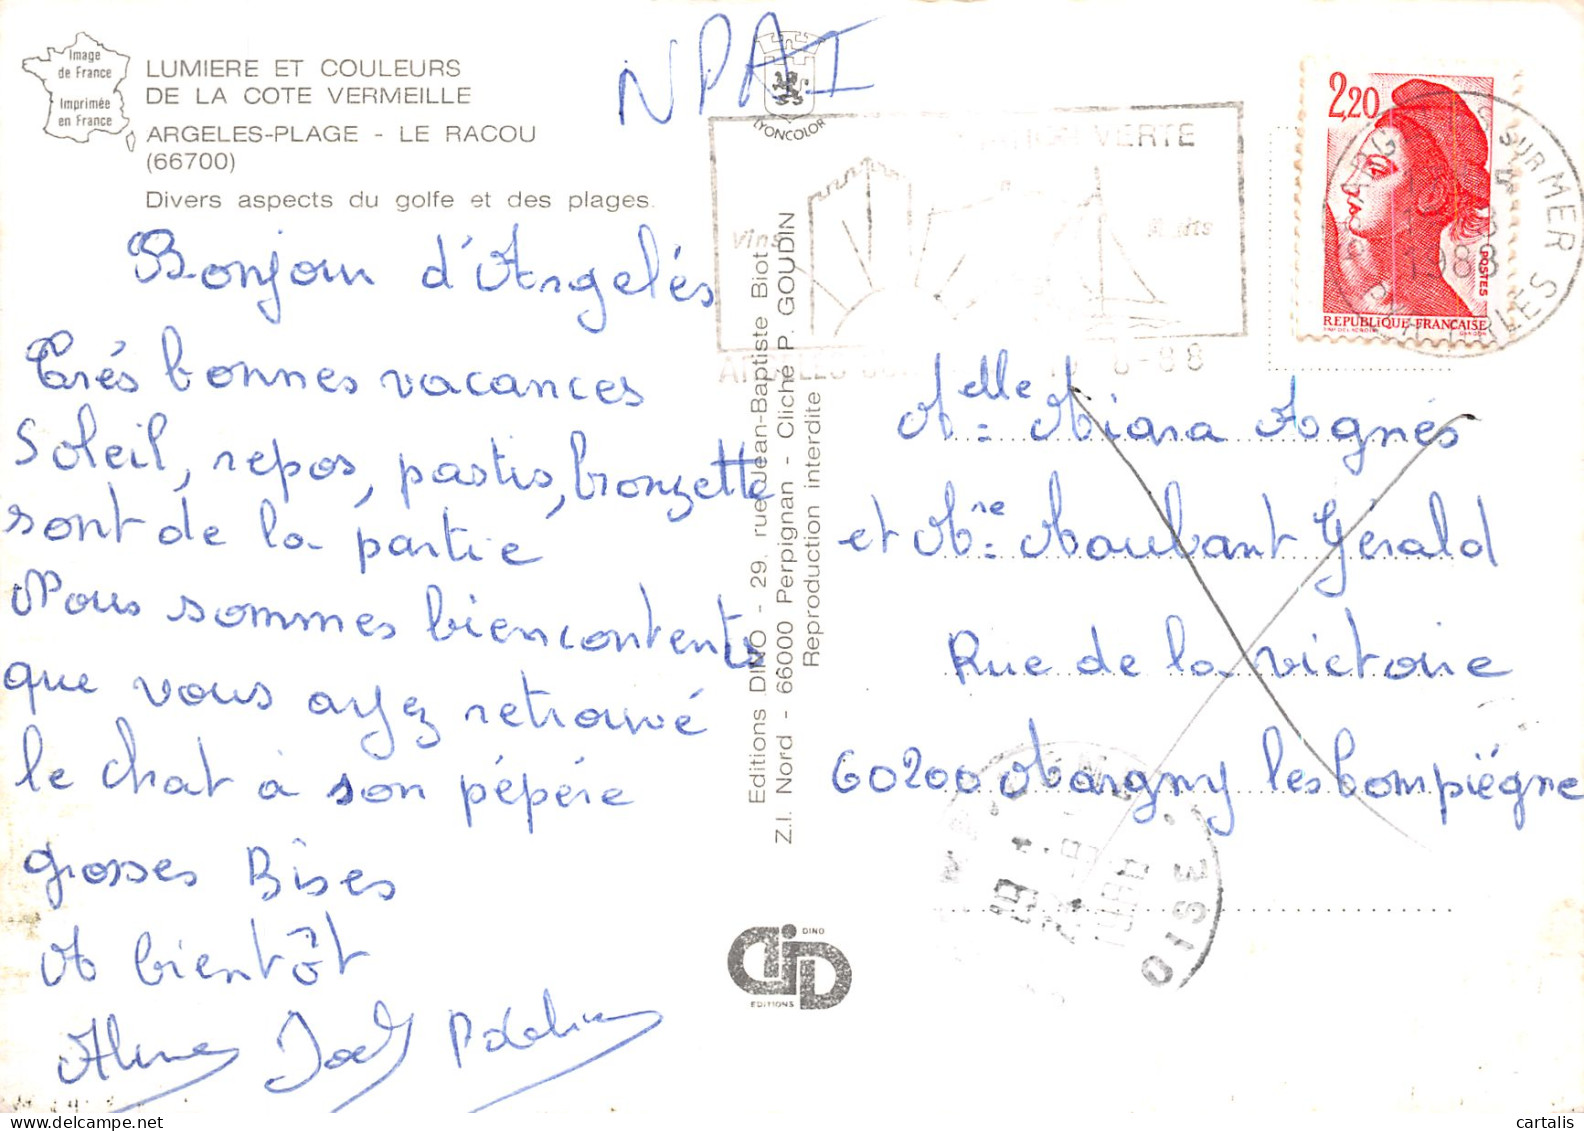 Image
de France
Imprimée
en France
LUMIERE ET COULEURS
DE LA COTE VERMEILLE
ARGELES-PLAGE - LE RACOU
(66700)
Divers aspects du golfe et des plages.
NPAI
LYONCOLOR
VERTE
Vins
8-88
2,20
POSTES
REPUBLIQUE FRANCAISE
SUR MER
1988
Bonjour d'Argelés
Trés bonnes vacances
Soleil, repos, pastis, bronzette
sont de la partie
Nous sommes bien contents
que vous ayez retrouvé
le chat à son pépére
grosses Bises
A bientôt
Aline Joël
Editions DINO - 29, rue Jean-Baptiste Biot
Z.I. Nord - 66000 Perpignan - Cliché P. GOUDIN
Reproduction interdite
DINO
EDITIONS
Melle Miara Agnés
et Mre Maubant Gérald
Rue de la victoire
60200 Margny les Compiégne
OISE
cartalis